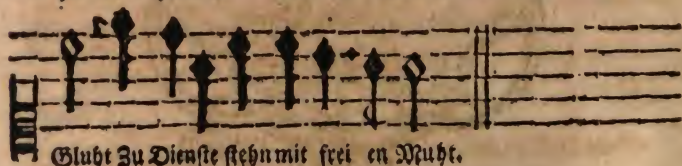 Gluht Zu Dienste stehn mit frei en Muht.